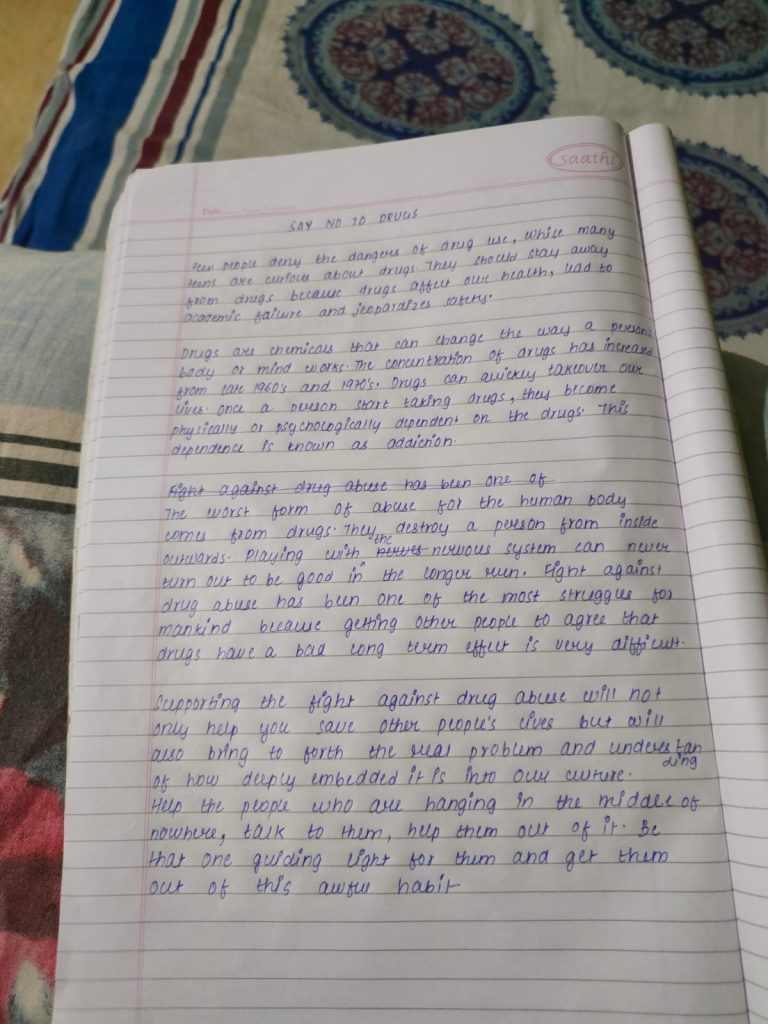 saathi
Date
SAY NO TO DRUGS
Few people deny the dangers of drug use, while many
teens are curious about drugs. They should stay away
from drugs because drugs affect our health, lead to
academic failure and jeopardizes safety.
Drugs are chemicals that can change the way a person's
body or mind works. The concentration of drugs has increased
from late 1960's and 1970's. Drugs can quickly takeover our
lives. Once a person start taking drugs, they become
physically or psychologically dependent on the drugs. This
dependence is known as addiction.
Fight against drug abuse has been one of
The worst form of abuse for the human body
comes from drugs. They destroy a person from inside
outwards. Playing with the nerves nervous system can never
turn out to be good in the longer run. Fight against
drug abuse has been one of the most struggles for
mankind because getting other people to agree that
drugs have a bad long term effect is very difficult.
Supporting the fight against drug abuse will not
only help you save other people's lives but will
also bring to forth the real problem and understan
ding
of how deeply embedded it is into our culture.
Help the people who are hanging in the middle of
nowhere, talk to them, help them out of it. Be
that one guiding light for them and get them
out of this awful habit